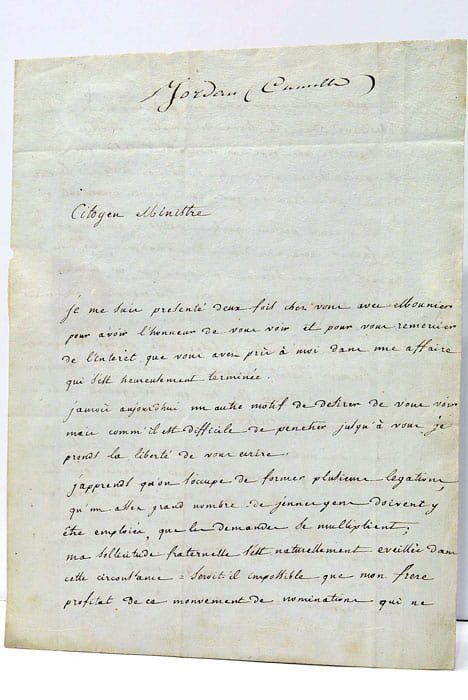 Jordan (Camille)
Citoyen Ministre
je me suis presenté deux fois chez vous avec Mounier
pour avoir l'honneur de vous voir et pour vous remercier
de l'interet que vous avez pris à moi dans une affaire
qui s'est heureusement terminée.
j'aurois aujourdhui un autre motif de desirer de vous voir
mais comm'il est difficile de penetrer jusqu'à vous je
prends la liberté de vous ecrire.
j'apprends qu'on s'occupe de former plusieurs legations
qu'un assez grand nombre de jeunes gens doivent y
être emploiés, que les demandes se multiplient;
ma sollicitude fraternelle s'est naturellement eveillée dans
cette circonstance = seroit il impossible que mon frere
profitat de ce mouvement de nominations qui ne